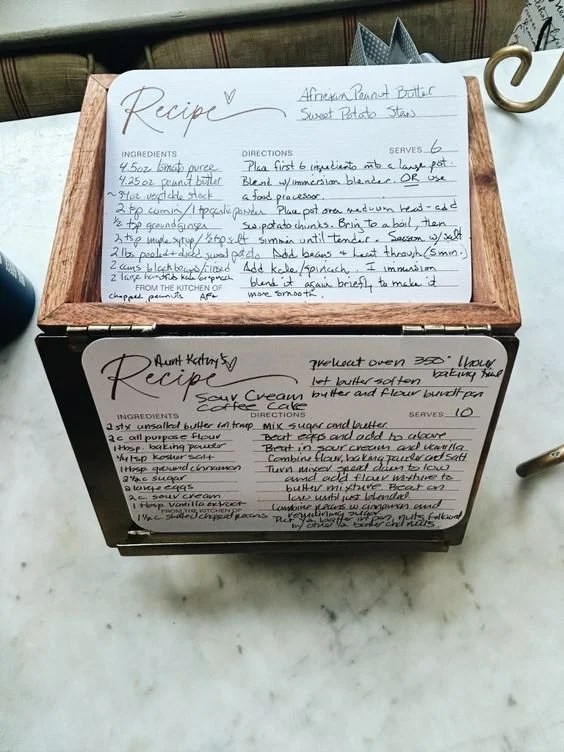 Recipe
African Peanut Butter
Sweet Potato Stew
INGREDIENTS DIRECTIONS SERVES 6
4.5oz tomato puree Place first 6 ingredients into a large pot.
4.25oz peanut butter Blend w/immersion blender. OR use
vegetable stock a food processor.
2 tsp cumin / 1 tsp garlic powder Place pot over medium heat - add
½ tsp ground ginger sw. potato chunks. Bring to a boil, then
2 tsp maple syrup / ½ tsp salt simmer until tender. Season w/salt
2 lbs peeled + diced sweet potato Add beans & heat through (5 min.)
2 cans black beans/rinsed Add kale/spinach. I immersion
2 large handfuls kale or spinach blend it again briefly to make it
FROM THE KITCHEN OF more smooth.
chopped peanuts
Aunt Kathy's
Recipe
preheat oven 350° 1 hour
baking time
let butter soften
butter and flour bundt pan
Sour Cream
Coffee Cake
INGREDIENTS DIRECTIONS SERVES 10
2 stx unsalted butter rm temp Mix sugar and butter
2 c all purpose flour Beat eggs and add to above
1 tbsp. baking powder Beat in sour cream and vanilla
¼ tsp kosher salt Combine flour, baking powder and salt
1 tbsp ground cinnamon Turn mixer speed down to low
sugar and add flour mixture to
2 large eggs butter mixture. Beat on
2 c. sour cream low until just blended.
1 tbsp vanilla extract Combine pecans w cinnamon and
FROM THE KITCHEN OF remaining sugar.
1 ½ c shelled chopped pecans Put ½ batter in pan, nuts followed
by other ½ batter and nuts.